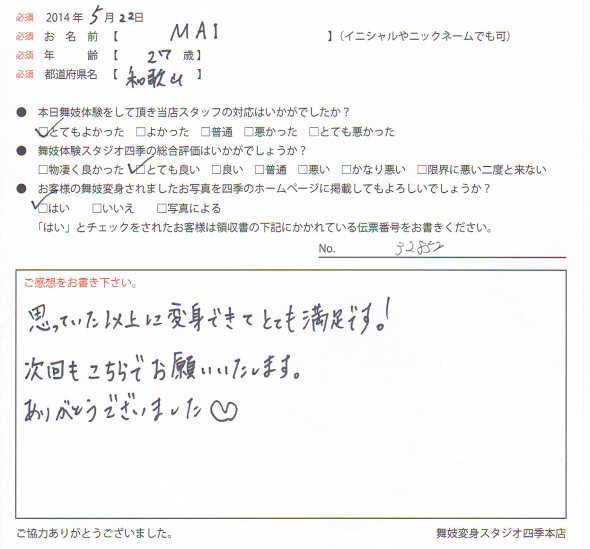 必須 2014 年 5 月 22日
必須 お 名 前 【 MAI 】(イニシャルやニックネームでも可)
必須 年 齢 【 27 歳】
必須 都道府県名 【 和歌山 】
● 本日舞妓体験をして頂き当店スタッフの対応はいかがでしたか？
☑とてもよかった □よかった □普通 □悪かった □とても悪かった
● 舞妓体験スタジオ四季の総合評価はいかがでしょうか？
□物凄く良かった ☑とても良い □良い □普通 □悪い □かなり悪い □限界に悪い二度と来ない
● お客様の舞妓変身されましたお写真を四季のホームページに掲載してもよろしいでしょうか？
☑はい □いいえ □写真による
「はい」とチェックをされたお客様は領収書の下記にかかれている伝票番号をお書きください。
No. 32852
ご感想をお書き下さい。
思っていた以上に変身できてとても満足です。!
次回もこちらでお願いいたします。
ありがとうございました♡
ご協力ありがとうございました。 舞妓変身スタジオ四季本店